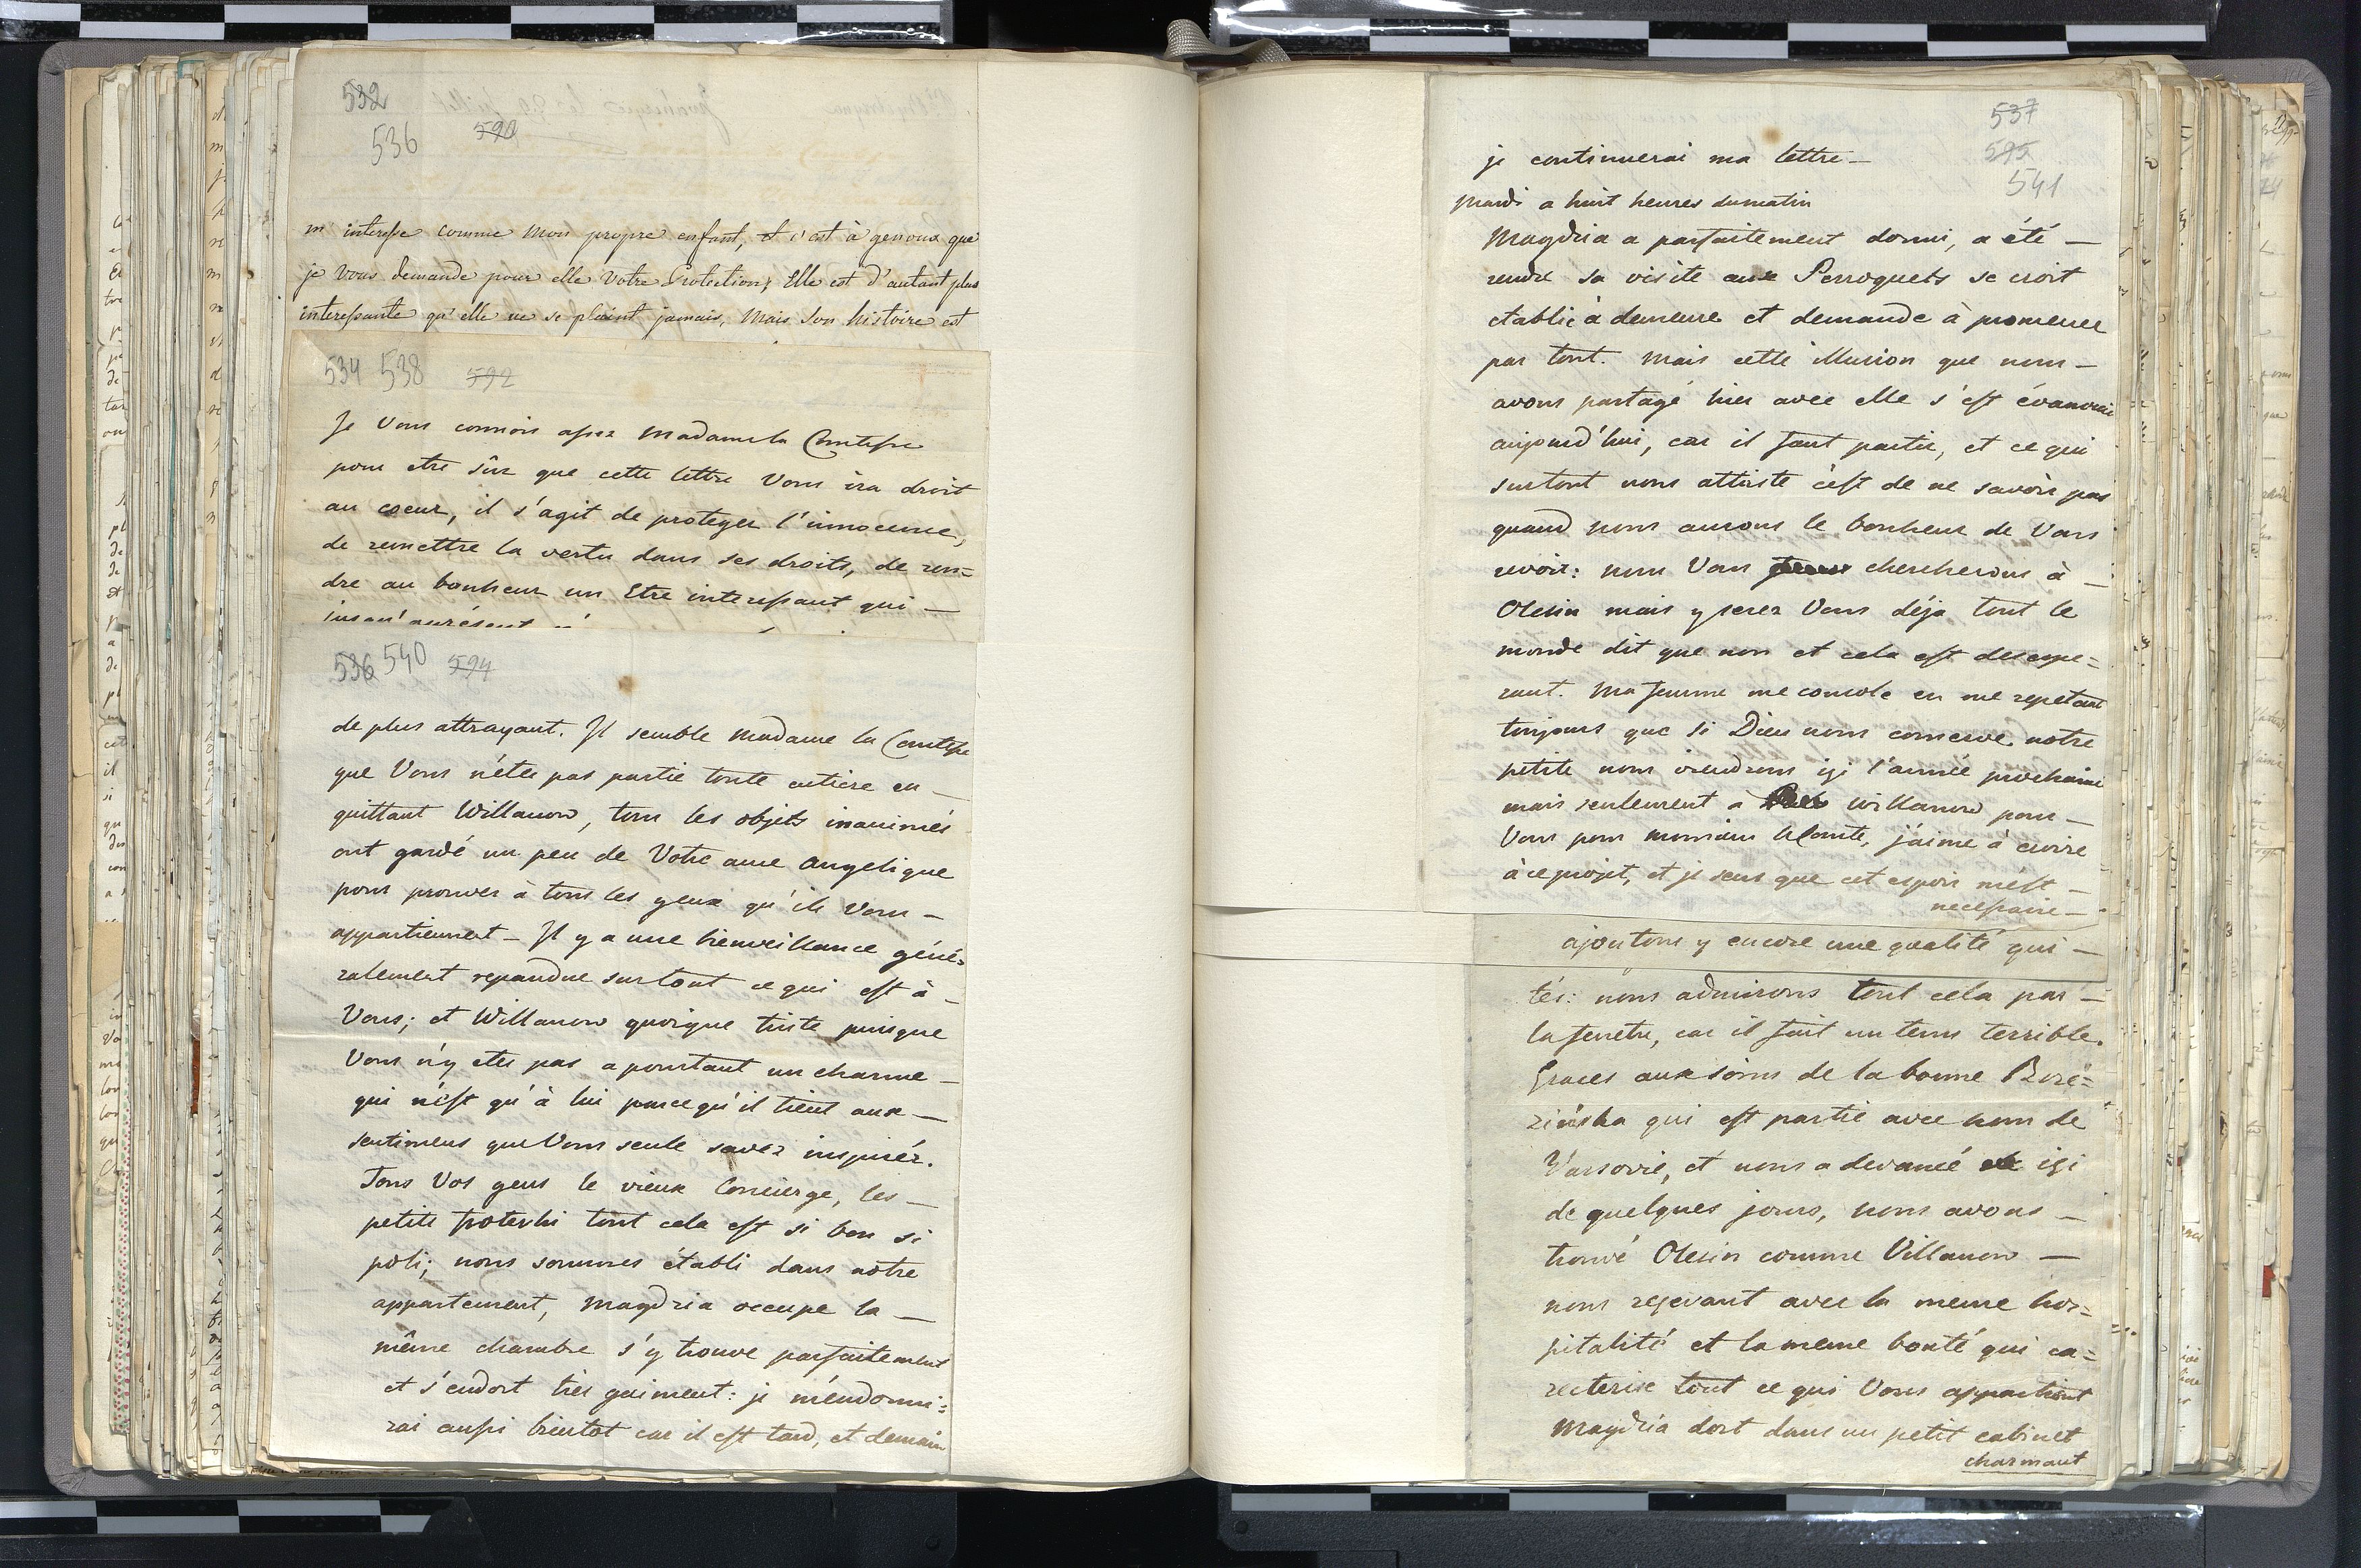 532
536 590
m'interesse comme mon propre enfant, et c'est à genoux que
je vous demande pour elle votre Protection; Elle est d'autant plus
interessante qu'elle ne se plaint jamais, mais son histoire est
534 538 592
Je Vous connois assez Madame la Comtesse
pour etre sûr que cette lettre Vous ira droit
au coeur, il s'agit de proteger l'innocence,
de remettre la vertu dans ses droits, de ren=
dre au bonheur un Etre interessant qui —
jusqu'aprésent
536 540 594
de plus attrayant. Il semble Madame la Comtesse
que Vous n'étes pas partie toute entiere en —
quittant Willanow, tous les objets inanimés
ont gardé un peu de Votre ame angelique
pour prouver à tous les yeux qu'ils Vous —
appartiennent — Il y a une bienveillance géné=
ralement repandue sur tout ce qui est à —
Vous; et Willanow quoique triste puisque
Vous n'y etes pas a pourtant un charme —
qui n'est qu'à lui parcequ'il tient aux —
sentimens que Vous seule savez inspirér.
Tous Vos gens le vieux Concierge, les —
petits froterki tout cela est si bon si
poli; nous sommes établi dans notre
appartement, Magdzia occupe la —
même chambre s'y trouve parfaitement
et s'endort très gaiment: je m'endormi=
rai aussi bientot car il est tard, et demain
537
595
541
je continuerai ma lettre —
Mardi a huit heures du matin
Magdzia a parfaitement dormi, a été —
rendre sa visite aux Perroquets se croit
etablie à demeure et demande à promener
par tout. Mais cette illusion que nous —
avons partagé hier avec elle s'est évanouie
aujourd'hui, car il faut partir, et ce qui
surtout nous attriste c'est de ne savoir pas
quand nous aurons le bonheur de Vous
revoir: nous Vous chercherons à —
Olesin mais y serez Vous déja tout le
monde dit que non et cela est desespe=
rant. Ma femme me console en me repetant
toujours que si Dieu nous conserve notre
petite nous viendrons içi l'année prochaine
mais seulement à Willanow pour —
Vous pour monsieur le Comte, j'aime à croire
à ce projet, et je sens que cet espoir m'est —
necessaire —
ajoutons y encore une qualité qui —
tés: nous admirons tout cela par —
la fenetre, car il fait un tems terrible.
Graces aux soins de la bonne Brze=
zińska qui est partie avec nous de
Varsovie, et nous a devancé içi
de quelques jours, nous avons —
trouvé Olesin comme Villanow —
nous reçevant avec la meme hos=
pitalité et la meme bonté qui ca=
racterise tout ce qui Vous appartient
Magdzia dort dans un petit cabinet
charmant